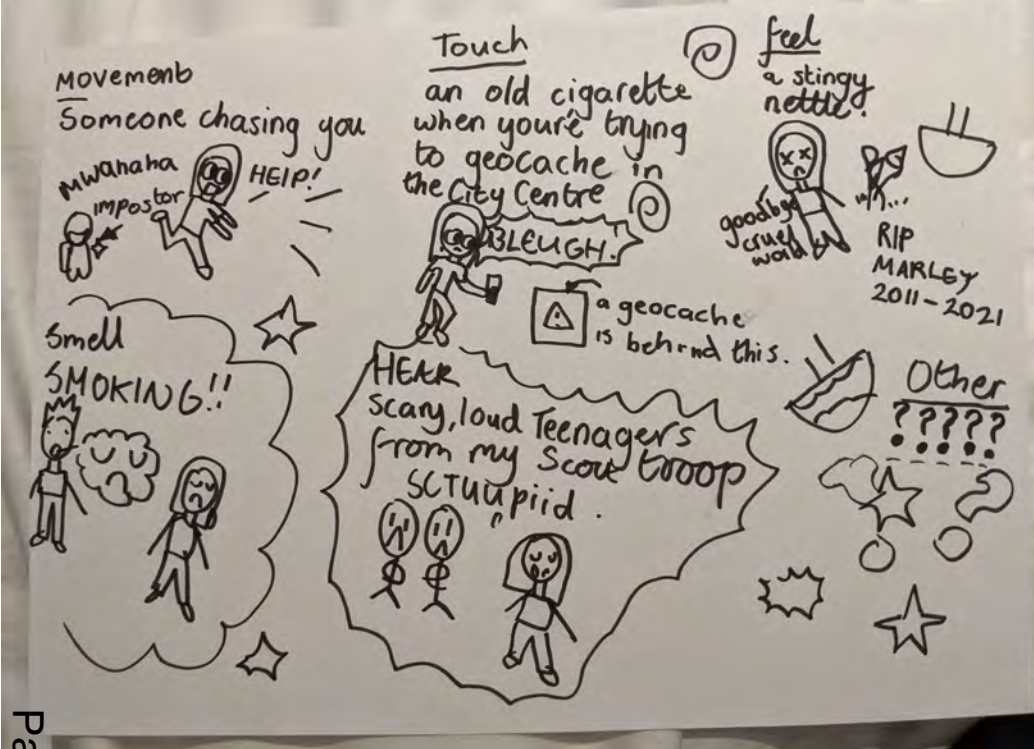 Movement
Someone chasing you
Mwanaha
impostor
HElP!
Touch
an old cigarette
when you're trying
to geocache in
the City Centre
BLEUGH.
a geocache
is behind this.
feel
a stingy
nettle!
goodbye
cruel
world
RIP
MARLEY
2011-2021
Smell
SMOKING!!
HEAR
Scary, loud Teenagers
from my Scout troop
SCTUUpiid.
Other
?????
Pa